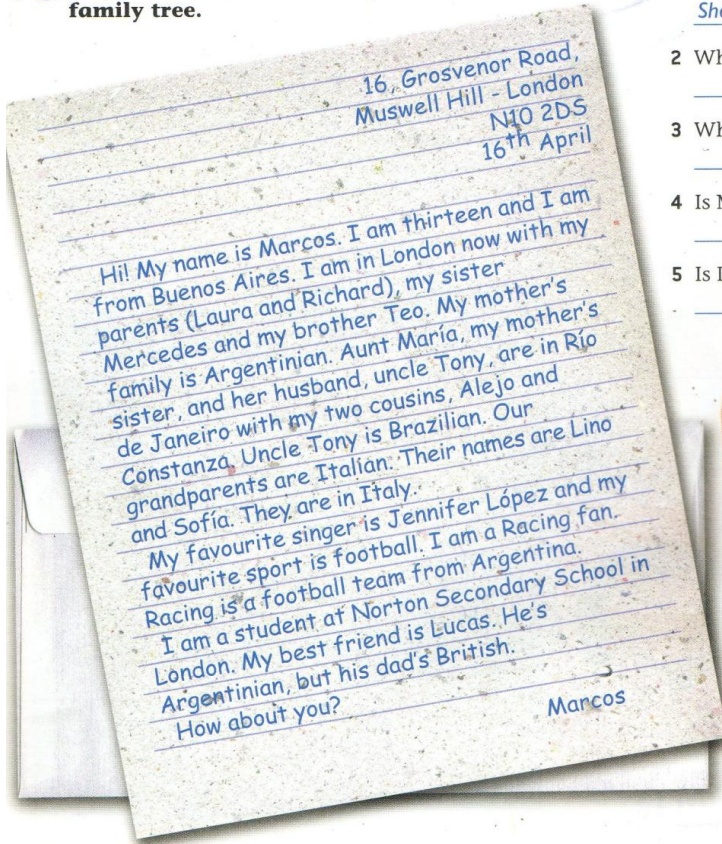 family tree.
16, Grosvenor Road,
Muswell Hill - London
N10 2DS
16th April
Hi! My name is Marcos. I am thirteen and I am
from Buenos Aires. I am in London now with my
parents (Laura and Richard), my sister
Mercedes and my brother Teo. My mother's
family is Argentinian. Aunt María, my mother's
sister, and her husband, uncle Tony, are in Río
de Janeiro with my two cousins, Alejo and
Constanza. Uncle Tony is Brazilian. Our
grandparents are Italian. Their names are Lino
and Sofía. They are in Italy.
My favourite singer is Jennifer López and my
favourite sport is football. I am a Racing fan.
Racing is a football team from Argentina.
I am a student at Norton Secondary School in
London. My best friend is Lucas. He's
Argentinian, but his dad's British.
How about you?
Marcos
2
3
4 Is
5 Is